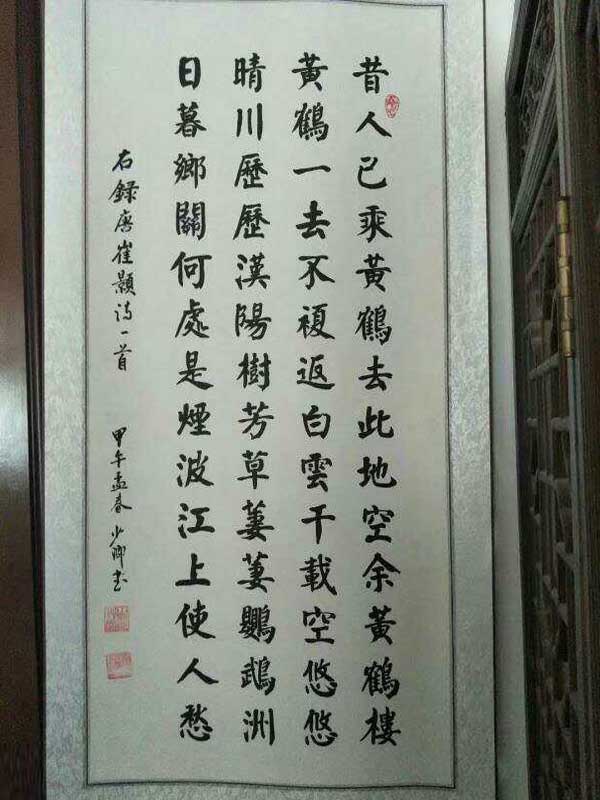 昔人已乘黃鶴去此地空余黃鶴樓
黃鶴一去不複返白雲千載空悠悠
晴川歷歷漢陽樹芳草萋萋鸚鵡洲
日暮鄉關何處是煙波江上使人愁
右錄唐崔顥詩一首
甲午孟春少卿書